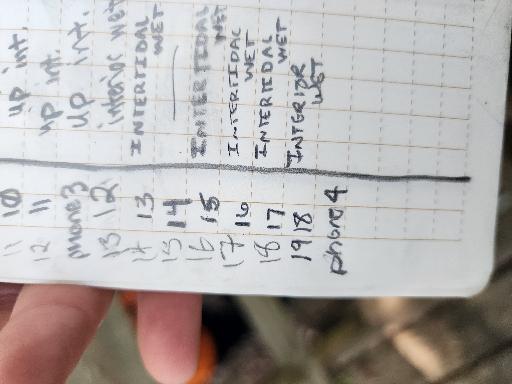 11 10 up int.
12 11 up int.
phone 3 up int
13 12 interior wet
14 13 INTERTIDAL
WET
15 14 —
16 15 INTERTIDAL
WET
17 16 INTERTIDAL
WET
18 17 INTERTIDAL
WET
19 18 INTERIOR
WET
phone 4